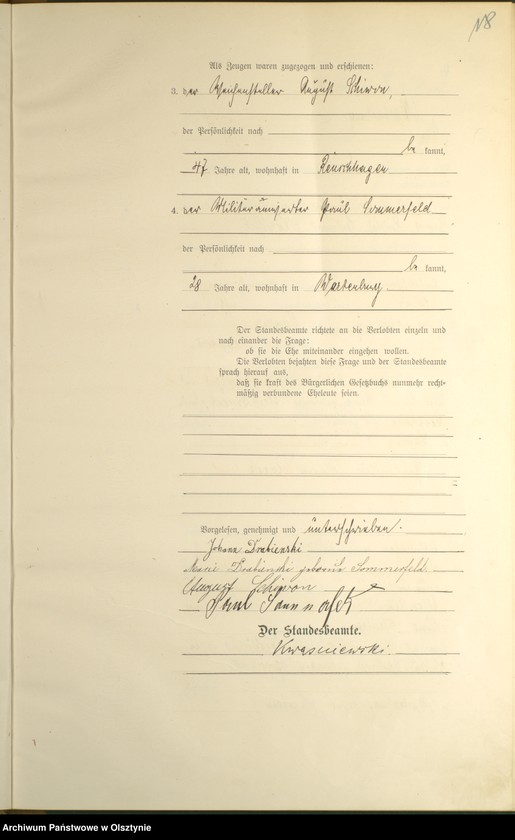 N8
Als Zeugen waren zugezogen und erschienen:
3. der Weichensteller August Schiwon,
der Persönlichkeit nach
be kannt,
47 Jahre alt, wohnhaft in Reuschhagen
4. der Militäranwärter Paul Sommerfeld
der Persönlichkeit nach
be kannt,
28 Jahre alt, wohnhaft in Wartenburg
Der Standesbeamte richtete an die Verlobten einzeln und
nach einander die Frage:
ob sie die Ehe miteinander eingehen wollen.
Die Verlobten bejahten diese Frage und der Standesbeamte
sprach hierauf aus,
daß sie kraft des Bürgerlichen Gesetzbuchs nunmehr recht-
mäßig verbundene Eheleute seien.
Vorgelesen, genehmigt und unterschrieben.
Johann Drabienski
Marie Drabienski geborene Sommerfeld.
August Schiwon
Paul Sommerfeld
Der Standesbeamte.
Kwasniewski.
Archiwum Państwowe w Olsztynie